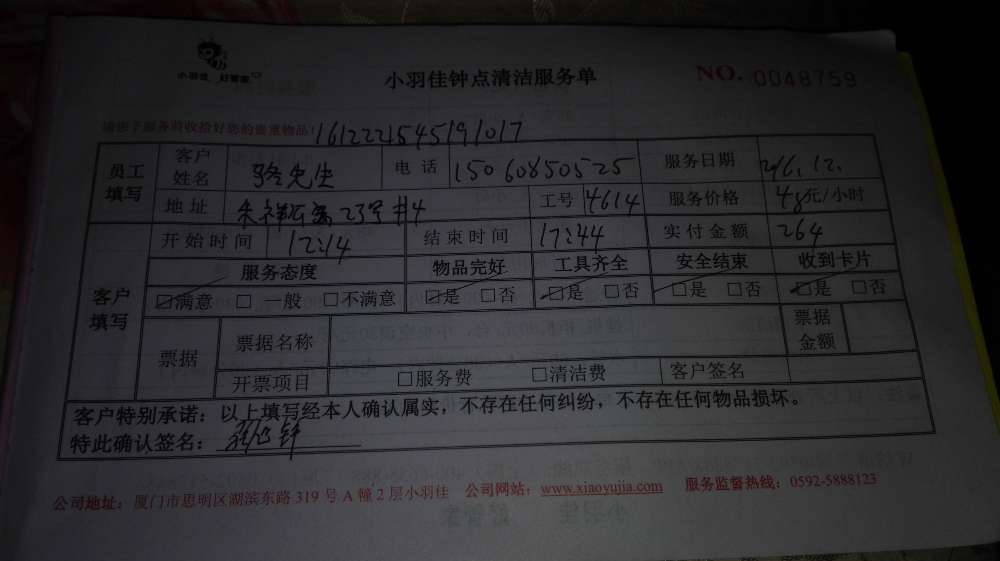 小羽佳 好管家
小羽佳钟点清洁服务单
NO. 0048759
请您于服务前收拾好您的贵重物品!
1612221545191017
员工填写 客户姓名 骆先生 电话 15060850525 服务日期 2016.12.
地址 23号 #4 工号 4614 服务价格 48元/小时
客户填写 开始时间 12:14 结束时间 17:44 实付金额 264
服务态度 物品完好 工具齐全 安全结束 收到卡片
☑满意 □一般 □不满意 ☑是 □否 ☑是 □否 ☑是 □否 ☑是 □否
票据 票据名称 票据金额
开票项目 □服务费 □清洁费 客户签名
客户特别承诺:以上填写经本人确认属实,不存在任何纠纷,不存在任何物品损坏。
特此确认签名:
公司地址:厦门市思明区湖滨东路 319 号 A 幢 2 层小羽佳 公司网站:www.xiaoyujia.com 服务监督热线:0592-5888123